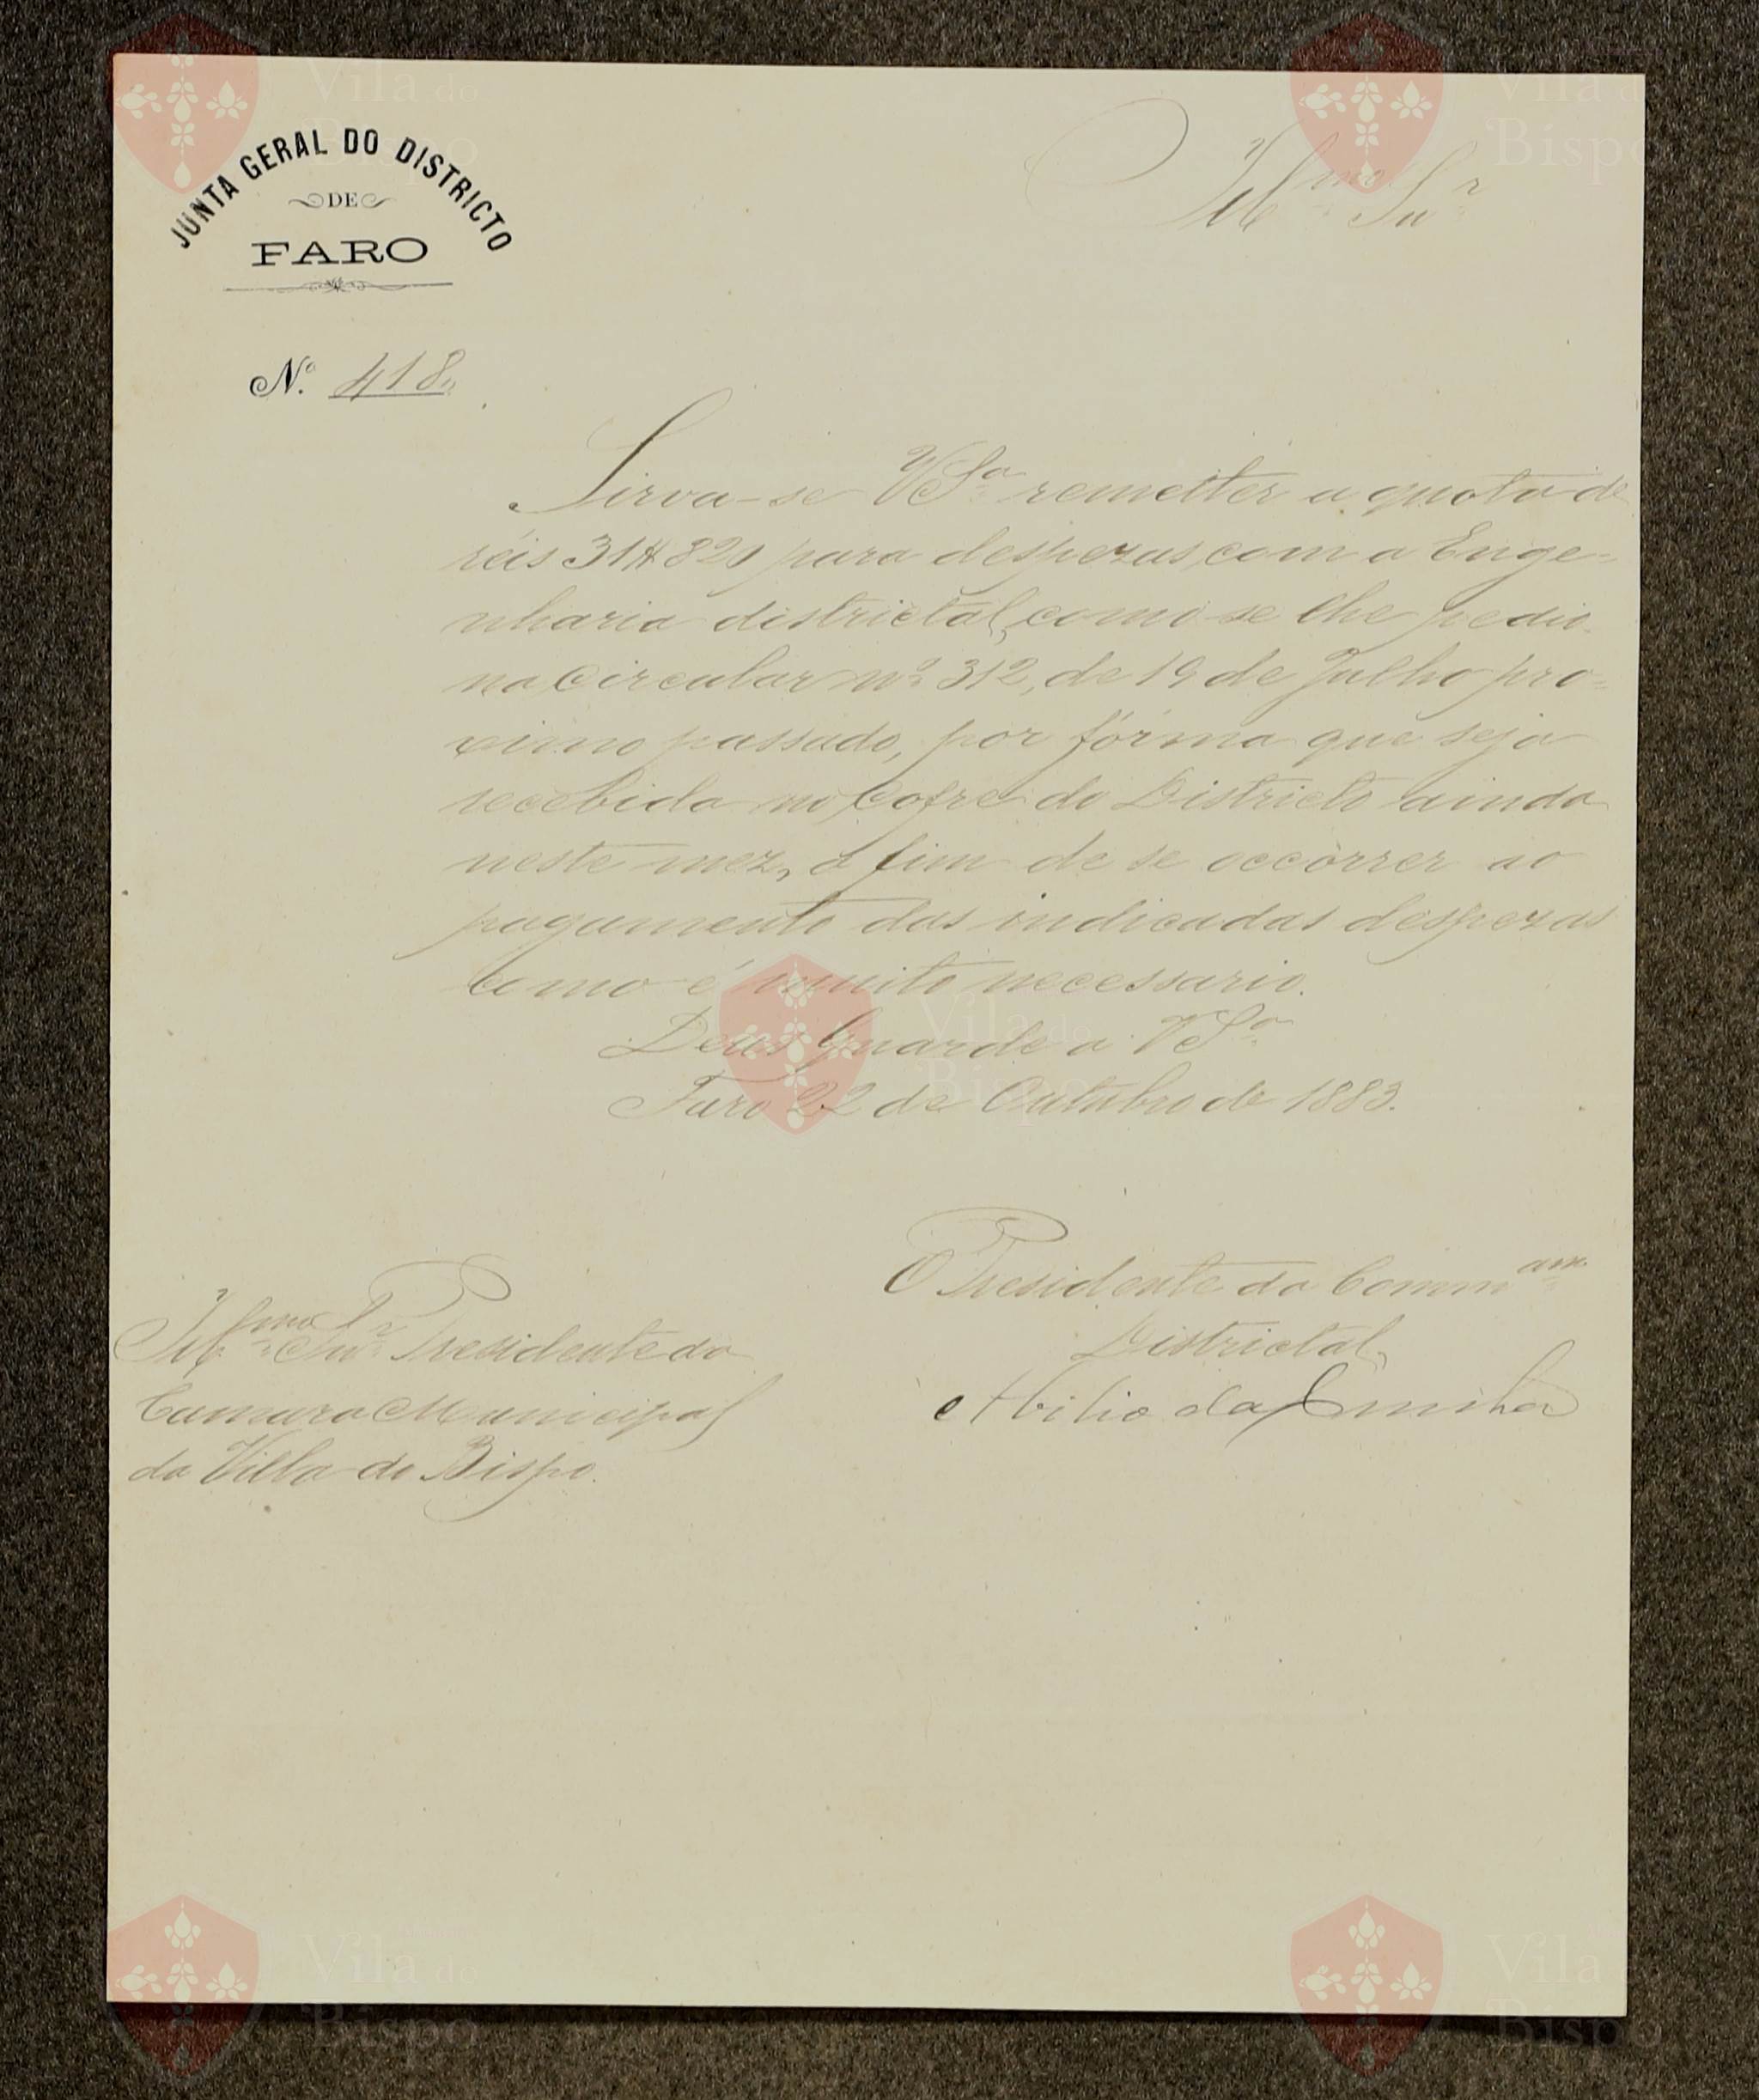 JUNTA GERAL DO DISTRICTO
DE
FARO
Nº 418
Illmo Snr
Sirva-se VSª remetter a quota de
réis 31$820 para despezas com a Enge-
nharia districtal, como se lhe pedio
na Circular nº 312, de 19 de Julho pro-
ximo passado, por fórma que seja
recebida no Cofre do Districto ainda
neste mez, a fim de se occorrer ao
pagamento das indicadas despezas
como é muito necessario.
Deus Guarde a VSª
Faro 22 de Outubro de 1883.
O Presidente da Commam
Districtal,
Abilio da Cunha
Illmo Snr Presidente da
Camara Municipal
da Villa do Bispo.
Vila do
Bispo
Vila do
Bispo
Vila do
Bispo
Vila do
Bispo
Vila
Bispo